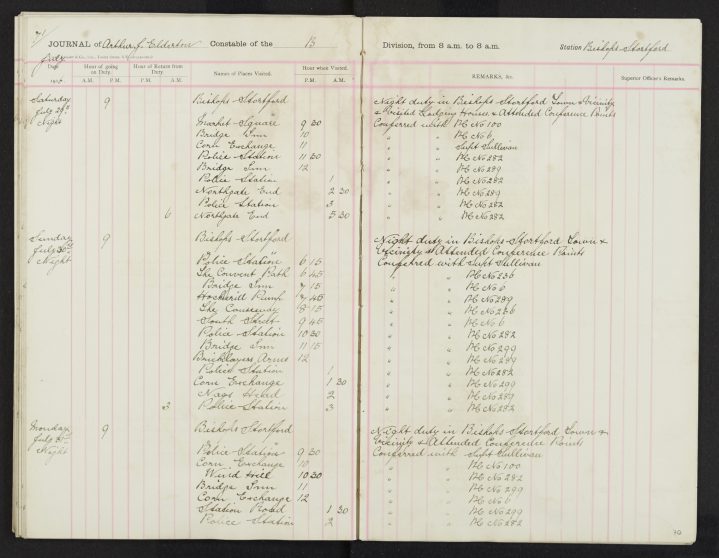 71
JOURNAL of Arthur J. Elderton Constable of the B Division, from 8 a.m. to 8 a.m. Station Bishops Stortford
July
Date. Hour of going on Duty. Hour of Return from Duty. Names of Places Visited. Hour when Visited. REMARKS, &c. Superior Officer's Remarks.
A.M. P.M. A.M. P.M. P.M. A.M.
Saturday 9 Bishops Stortford Night duty in Bishops Stortford Town & Vicinity
July 29th & Visited Lodging Houses & Attended Conference Points
Night Market Square 9 30 Conferred with PC No 100
Bridge Inn 10 " " PC No 6
Corn Exchange 11 " " Supt Sullivan
Police Station 11 30 " " PC No 282
Bridge Inn 12 " " PC No 289
Police Station 1 " " PC No 282
Northgate End 2 30 " " PC No 289
Police Station 3 " " PC No 282
6 Northgate End 5 30 " " PC No 282
Sunday 9 Bishops Stortford Night duty in Bishops Stortford Town &
July 30th Vicinity & Attended Conference Points
Night Police Station 6 15 Conferred with Supt Sullivan
The Convent Path 6 45 " " PC No 236
Bridge Inn 7 15 " " PC No 6
Hockerill Pump 7 45 " " PC No 289
The Causeway 8 15 " " PC No 236
South Street 9 45 " " PC No 6
Police Station 10 30 " " PC No 282
Bridge Inn 11 15 " " PC No 299
Bricklayers Arms 12 " " PC No 289
Police Station 1 " " PC No 282
Corn Exchange 1 30 " " PC No 299
Nags Head 2 " " PC No 289
3 Police Station 3 " " PC No 282
Monday 9 Bishops Stortford Night duty in Bishops Stortford Town &
July 31st Vicinity & Attended Conference Points
Night Police Station 9 30 Conferred with Supt Sullivan
Corn Exchange 10 " " PC No 100
Wind Hill 10 30 " " PC No 282
Bridge Inn 11 " " PC No 299
Corn Exchange 12 " " PC No 6
Station Road 1 30 " " PC No 299
Police Station 2 " " PC No 282